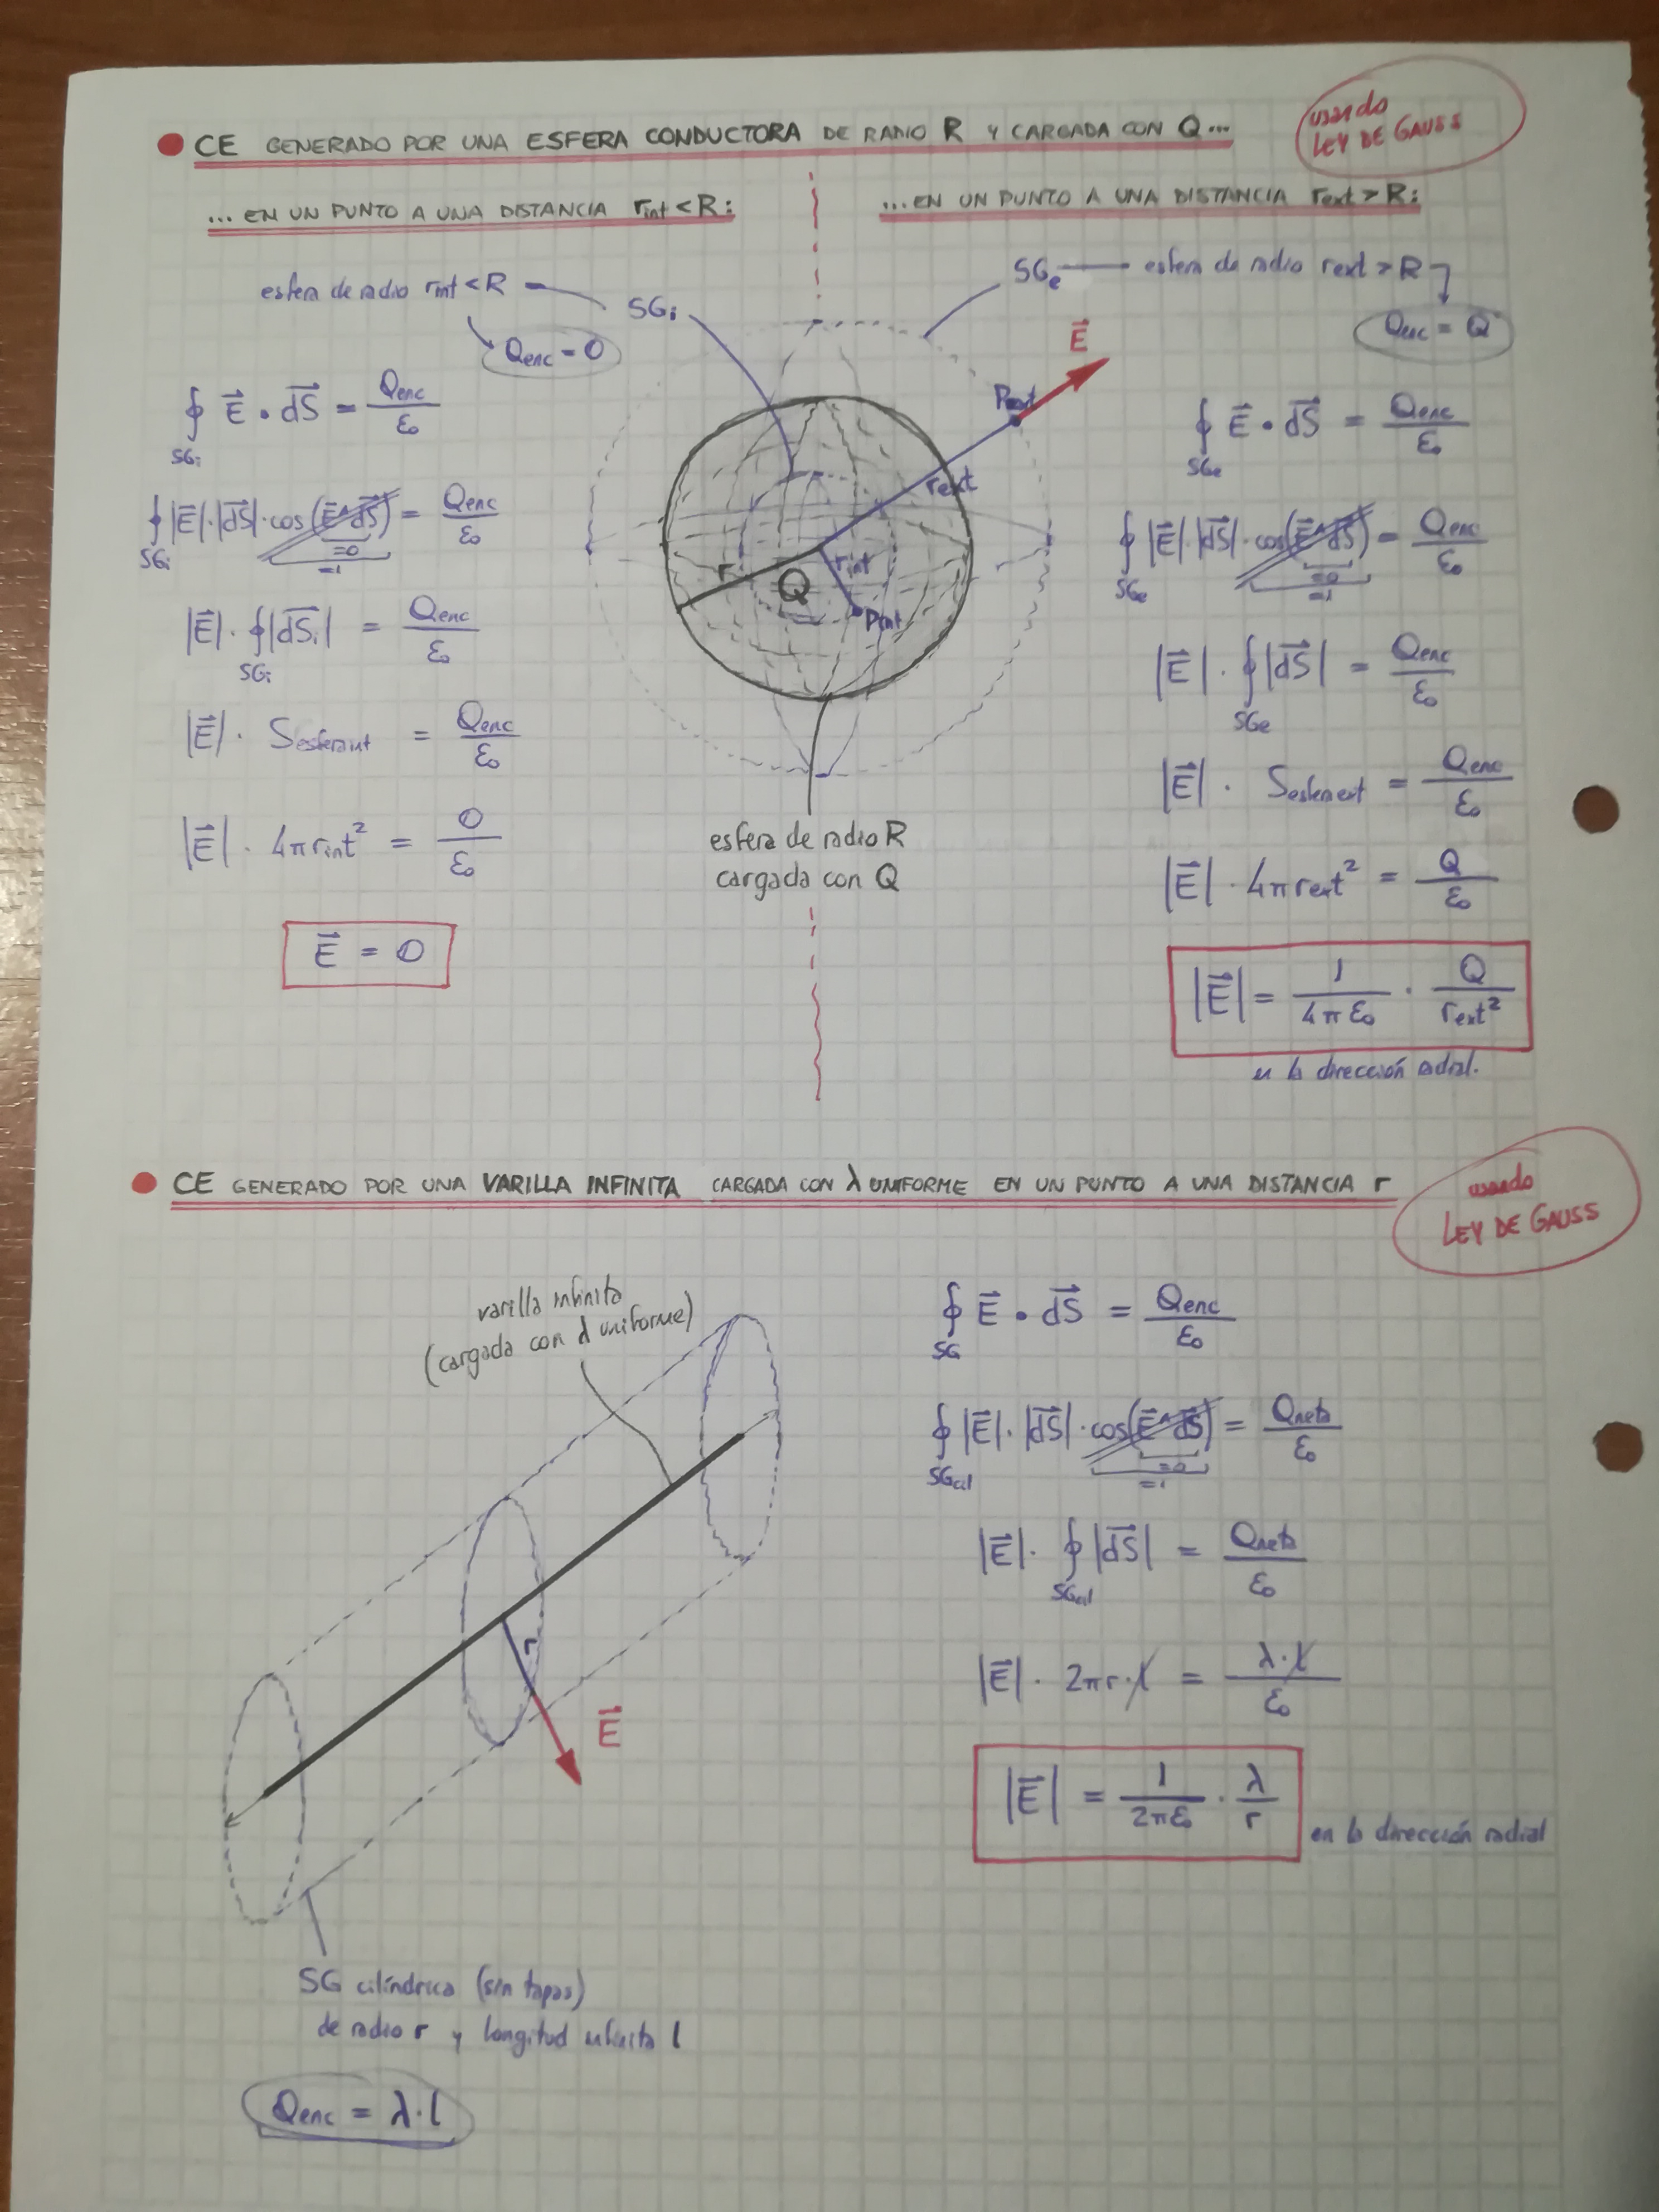 ● CE GENERADO POR UNA ESFERA CONDUCTORA DE RADIO R Y CARGADA CON Q...
usando
LEY DE GAUSS
... EN UN PUNTO A UNA DISTANCIA rint < R:
esfera de radio rint < R — SGi
Qenc = 0
∮SGi E⃗ • dS⃗ = Qenc/ε₀
∮SGi |E⃗|·|dS⃗|·cos(E⃗^dS⃗) = Qenc/ε₀
=0
=1
|E⃗| · ∮SGi |dS⃗i| = Qenc/ε₀
|E⃗| · Sesferaint = Qenc/ε₀
|E⃗| · 4πrint² = 0/ε₀
E⃗ = 0
...EN UN PUNTO A UNA DISTANCIA rext > R:
SGe — esfera de radio rext > R
Qenc = Q
E⃗
Pext
rext
r
Q
rint
Pint
esfera de radio R
cargada con Q
∮SGe E⃗ • dS⃗ = Qenc/ε₀
∮SGe |E⃗|·|dS⃗|·cos(E⃗^dS⃗) = Qenc/ε₀
=0
=1
|E⃗| · ∮SGe |dS⃗| = Qenc/ε₀
|E⃗| · Sesferaext = Qenc/ε₀
|E⃗| · 4πrext² = Q/ε₀
|E⃗| = 1/4πε₀ · Q/rext²
en la dirección radial.
● CE GENERADO POR UNA VARILLA INFINITA CARGADA CON λ UNIFORME EN UN PUNTO A UNA DISTANCIA r
usando
LEY DE GAUSS
varilla infinita
(cargada con λ uniforme)
r
E⃗
SG cilíndrica (sin tapas)
de radio r y longitud infinita l
Qenc = λ·l
∮SG E⃗ • dS⃗ = Qenc/ε₀
∮SGcil |E⃗|·|dS⃗|·cos(E⃗^dS⃗) = Qneta/ε₀
=0
=1
|E⃗| · ∮SGcil |dS⃗| = Qneta/ε₀
|E⃗| · 2πr·l = λ·l/ε₀
|E⃗| = 1/2πε₀ · λ/r
en la dirección radial